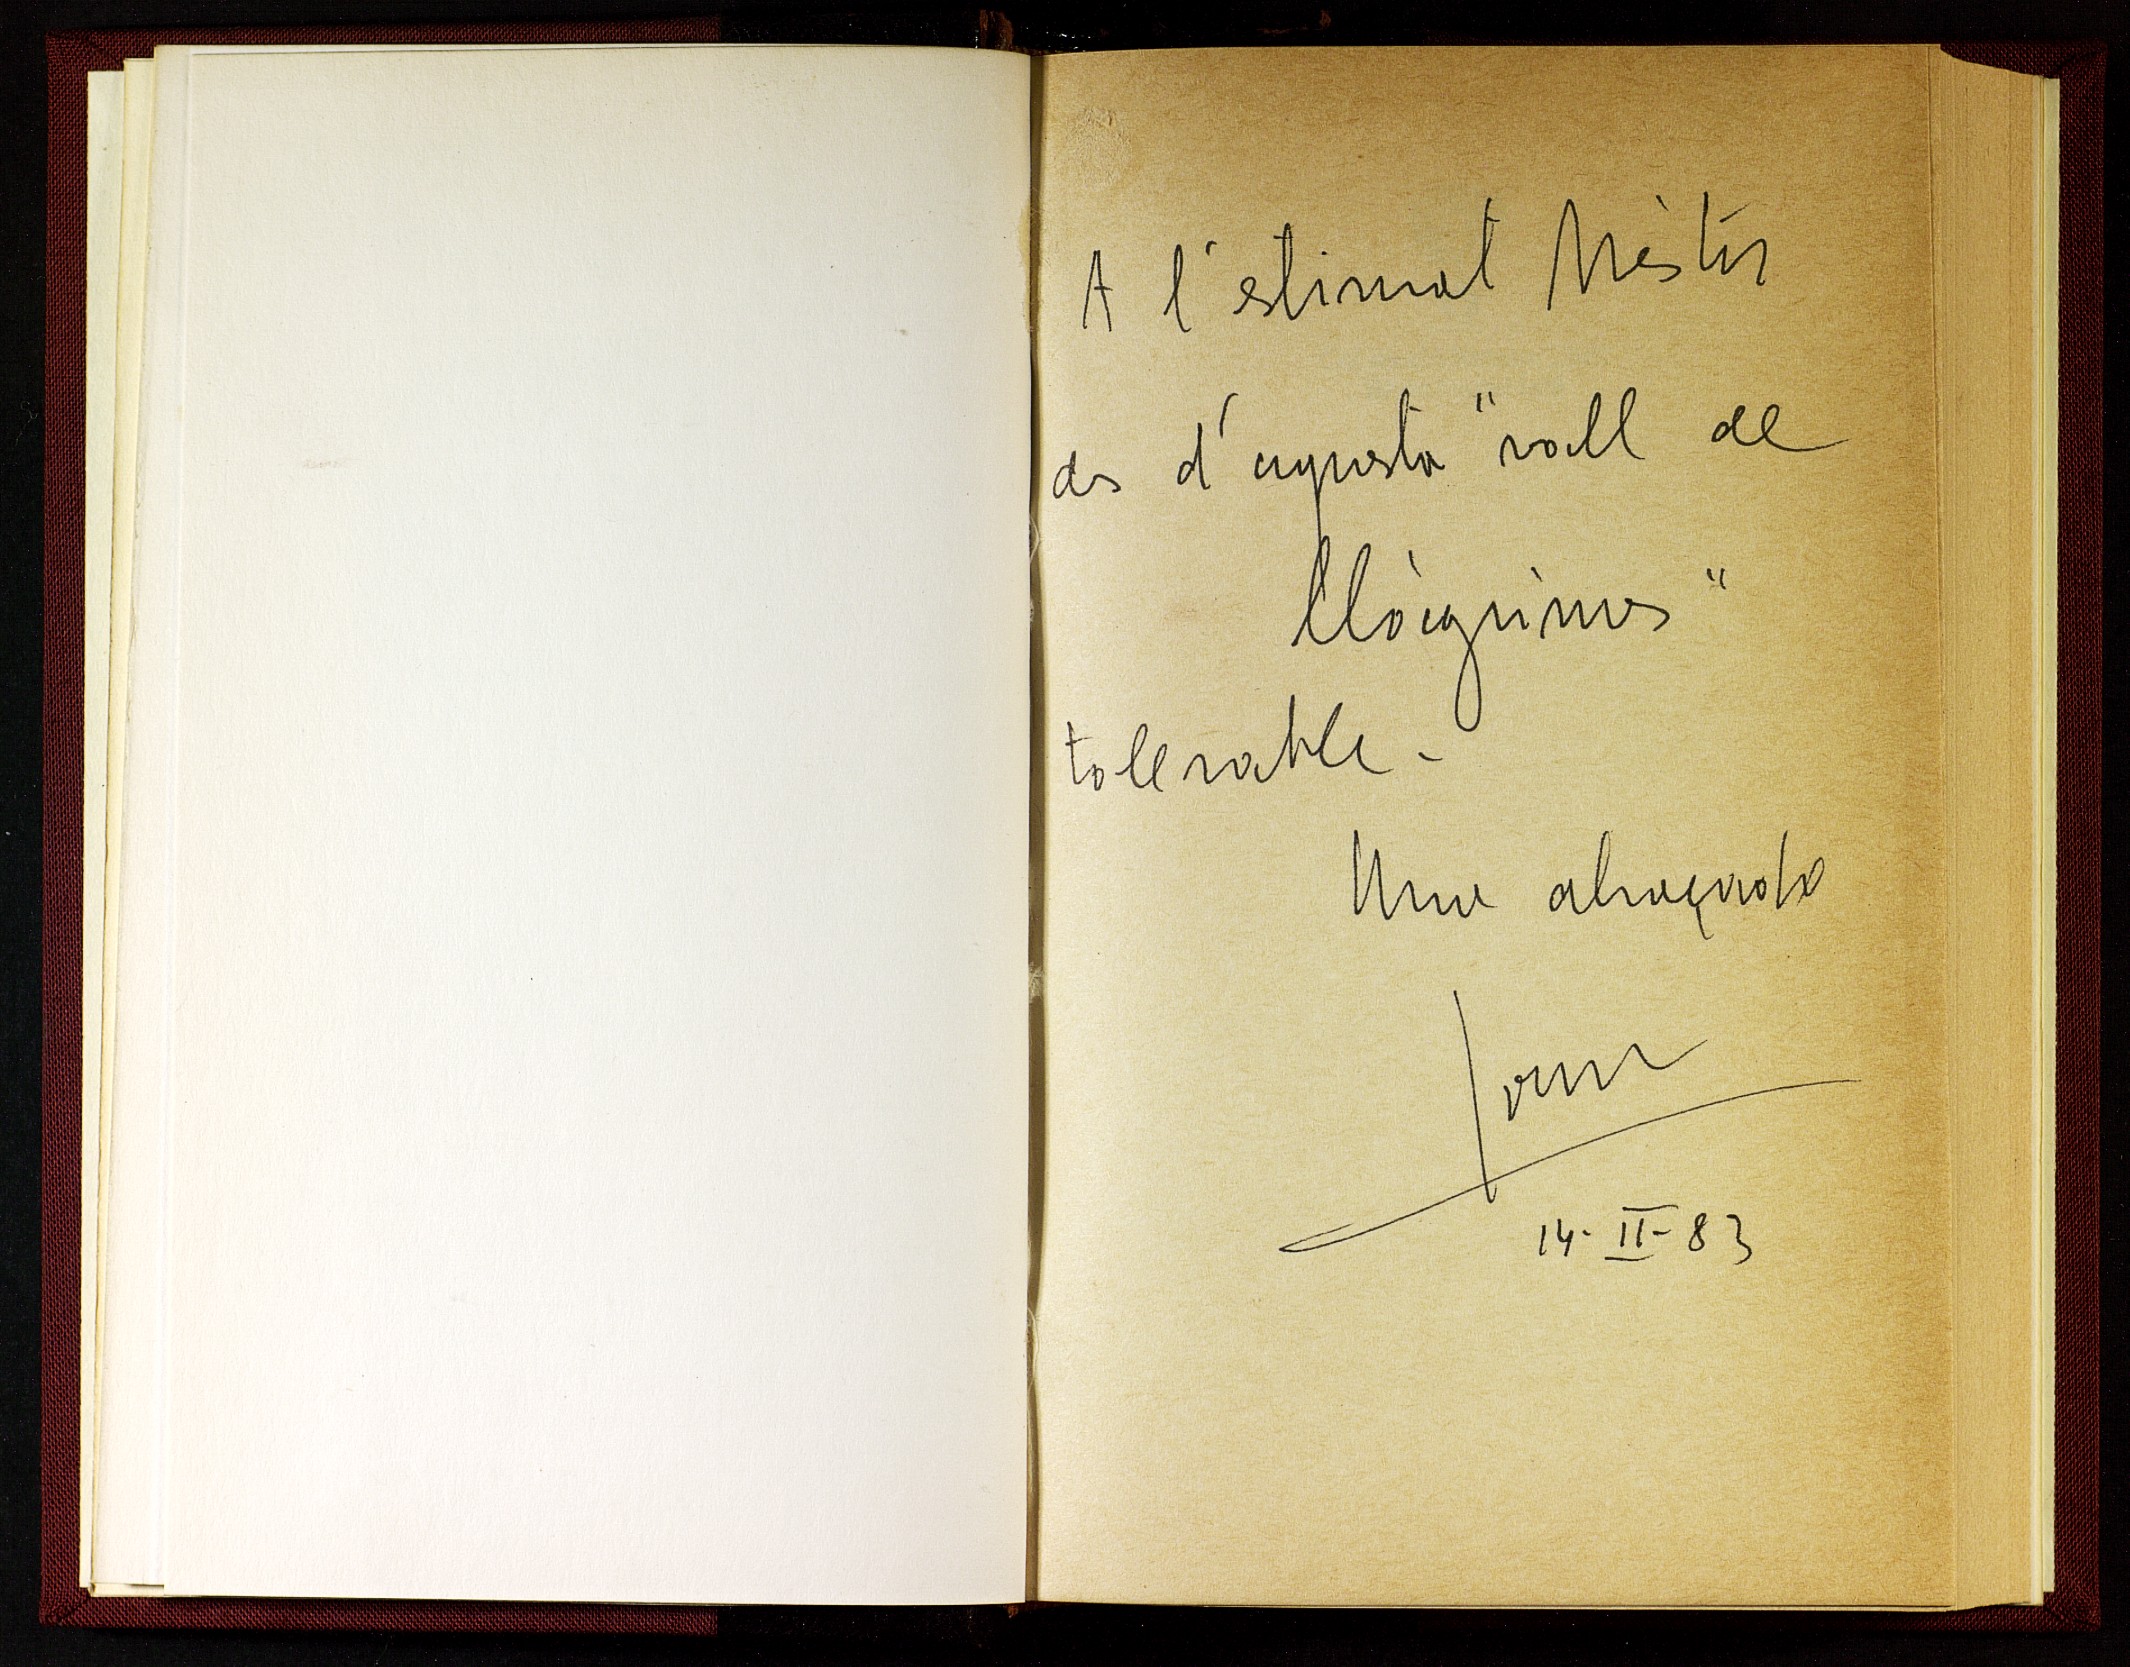 A l'estimat Nèstor
des d'aquesta "vall de
llàgrimes"
tolerable.
Una abraçada
Joan
14-II-83